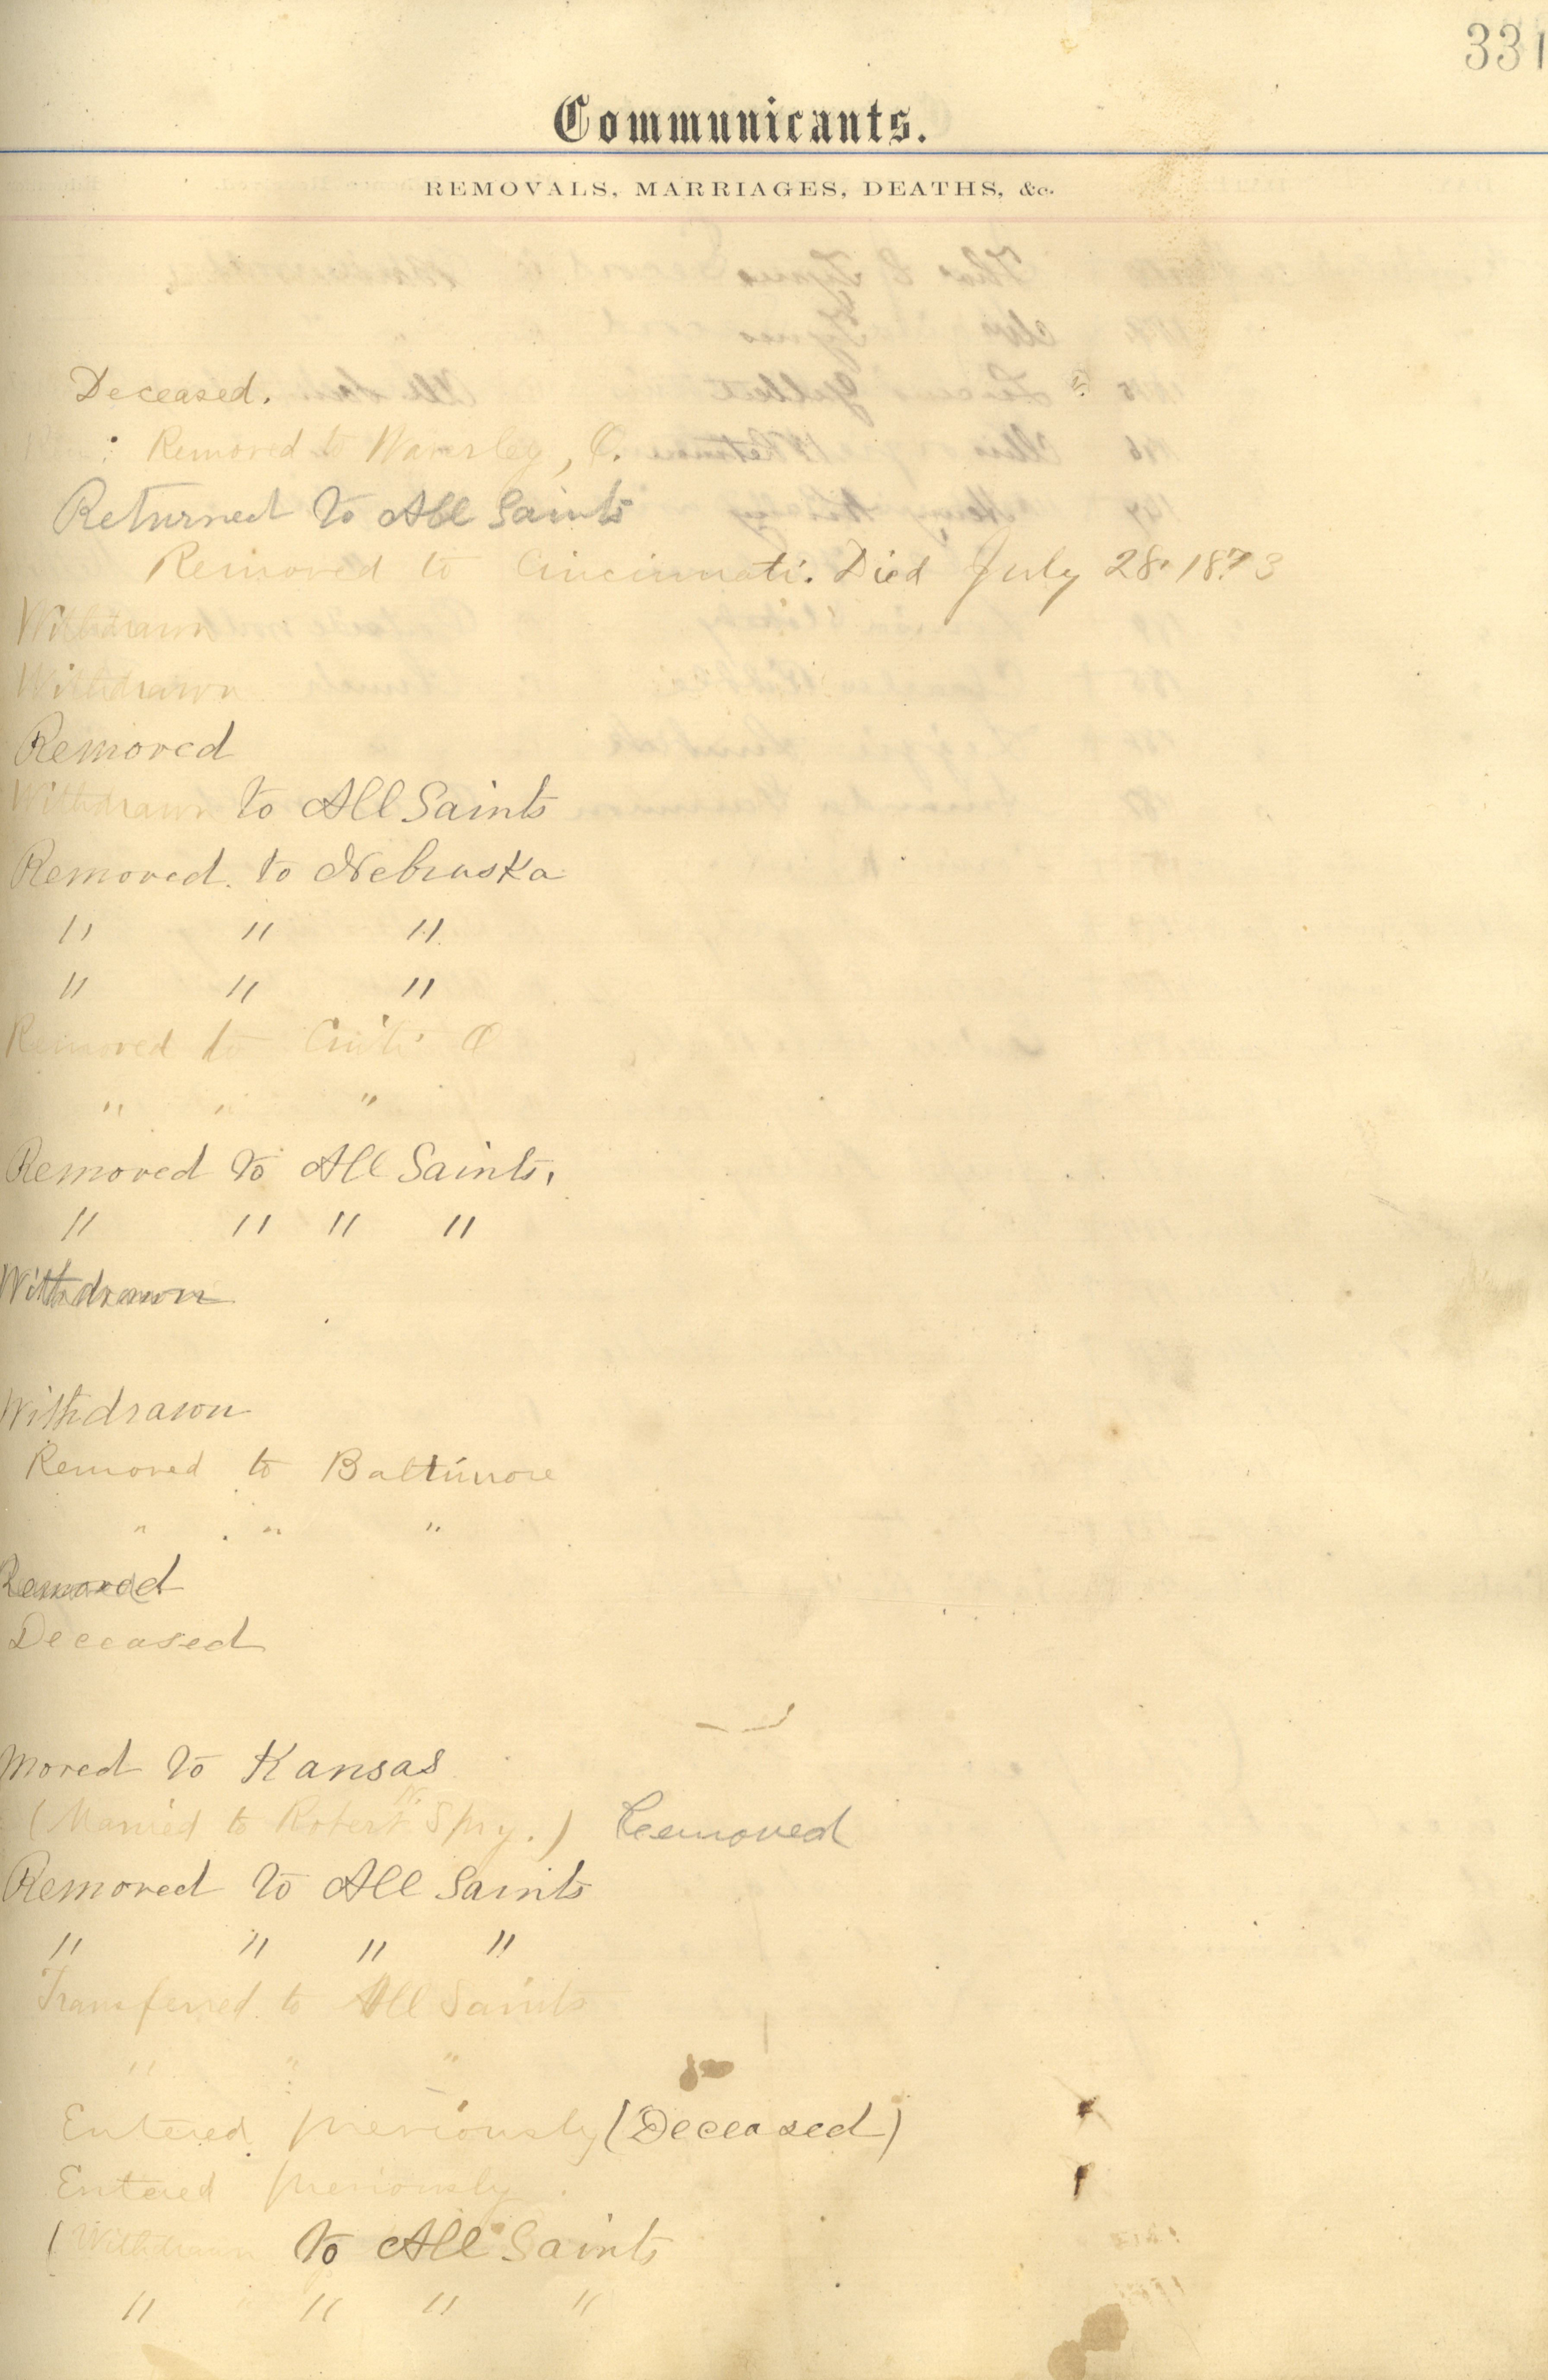 331
Communicants.
REMOVALS, MARRIAGES, DEATHS, &c.
Deceased.
Removed to Waverley, O.
Returned to All Saints
Removed to Cincinnati. Died July 28. 1873
Withdrawn
Withdrawn
Removed
Withdrawn to All Saints
Removed. to Nebraska
" " "
" " "
Removed to Cinti O
" " "
Removed to All Saints.
" " " "
Withdrawn
Withdrawn
Removed to Baltimore
" " "
Removed
Deceased
Moved to Kansas
(Married to Robert W. Spry.) Removed
Removed to All Saints
" " " "
Transferred to All Saints
" " "
Entered previously (Deceased)
Entered previously.
(Withdrawn to All Saints
" " " "